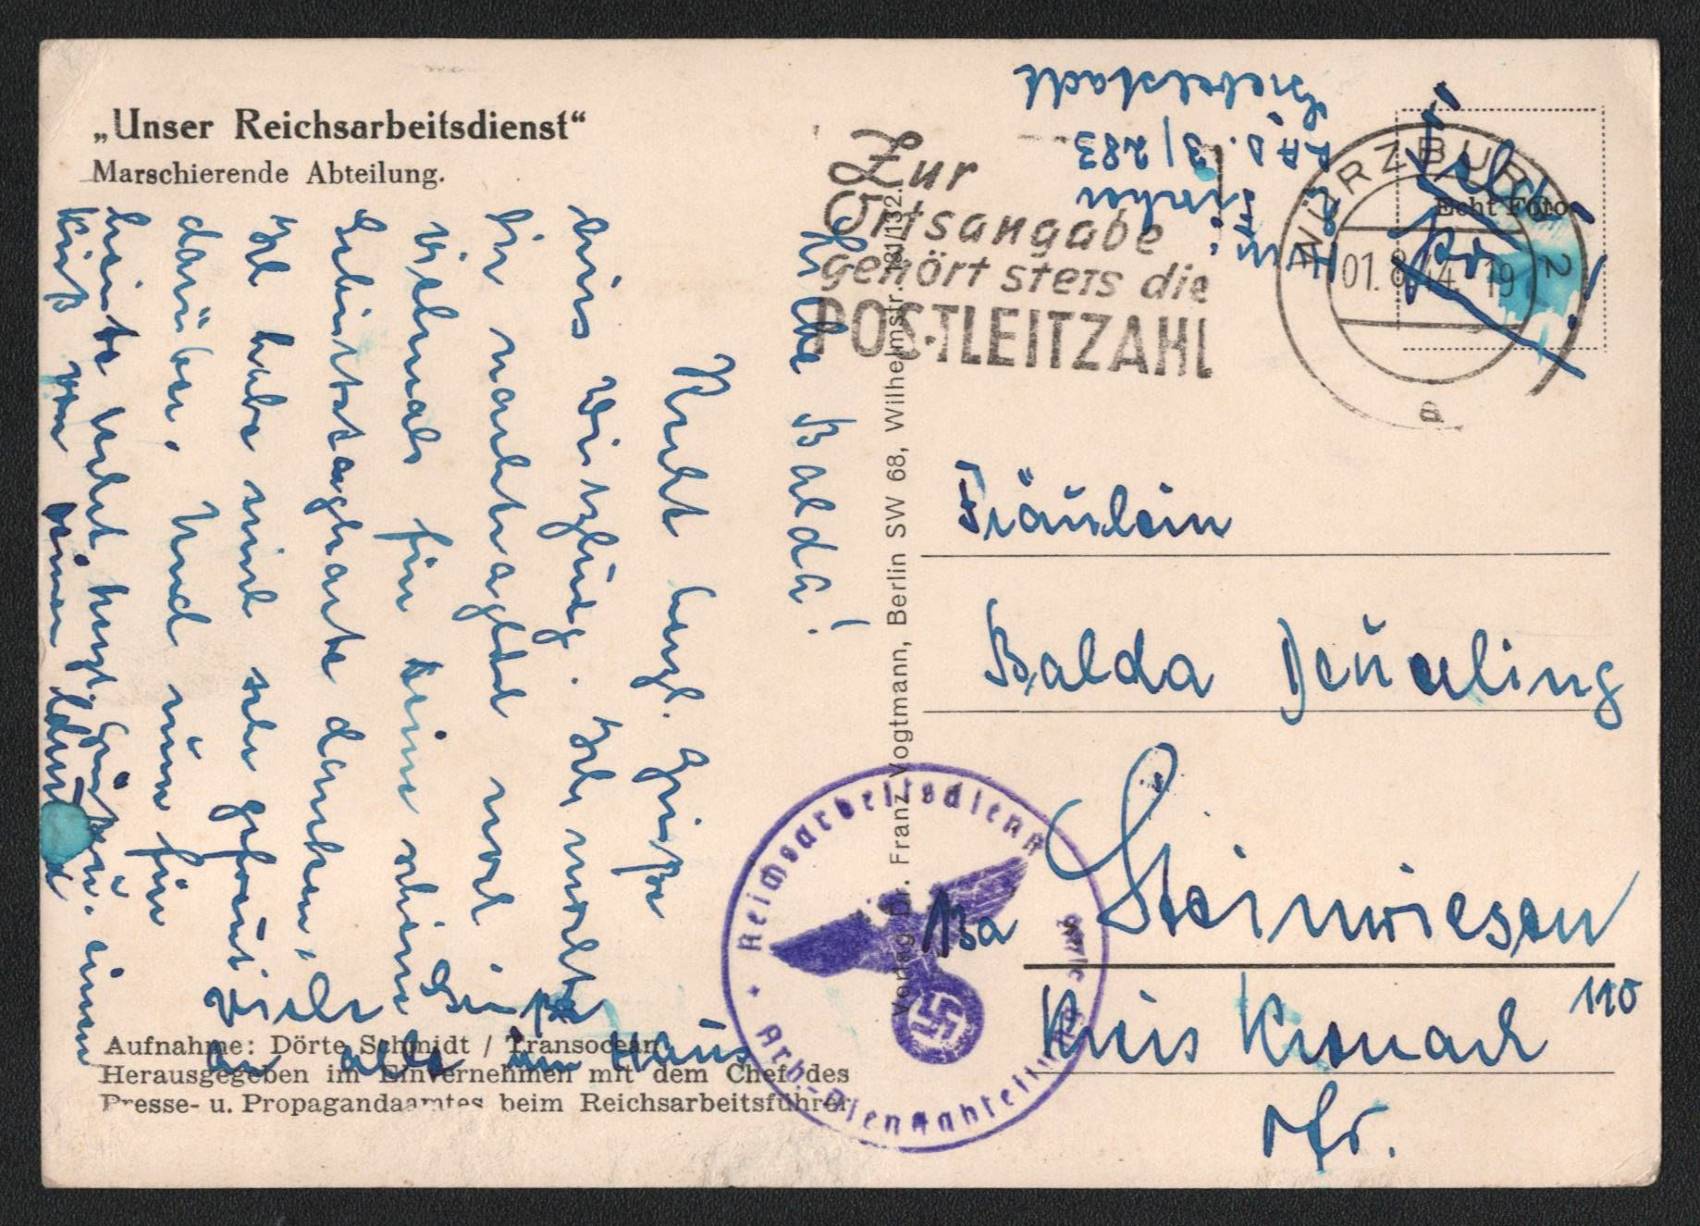 „Unser Reichsarbeitsdienst“
Marschierende Abteilung.
Liebe Balda!
Recht herzl. Grüße
aus Würzburg. Ich möchte
Dir nachträglich noch
vielmals für Deine schöne
Geburtstagskarte danken,
Ich habe mich sehr gefreut
darüber. Und nun für
heute recht herzl. Grüße u. einen
Kuß von
viele Grüße
an alle im Haus
Aufnahme: Dörte Schmidt / Transocean
Herausgegeben im Einvernehmen mit dem Chef des
Presse- u. Propagandaamtes beim Reichsarbeitsführer
Verlag Dr. Franz Vogtmann, Berlin SW 68, Wilhelmstr. 131/132.
Zur
Ortsangabe
gehört stets die
POSTLEITZAHL
RAD. 3/283
Giebelstadt
WÜRZBURG 2
01.8.44. 19
a
Echt Foto
Fräulein
Balda Deuerling
13a Steinwiesen
110
Kreis Kronach
Ofr.
Reichsarbeitsdienst
Arb.-Dienstabteilung